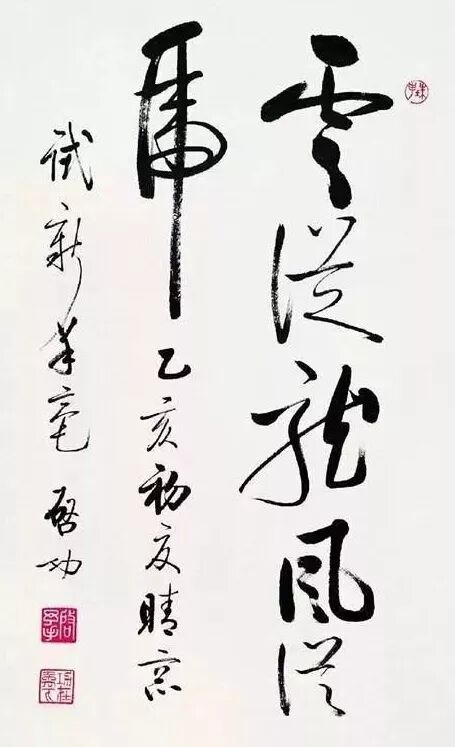 雲從龍風從
虎 乙亥初夏晴窗
試新羊毫 啓功